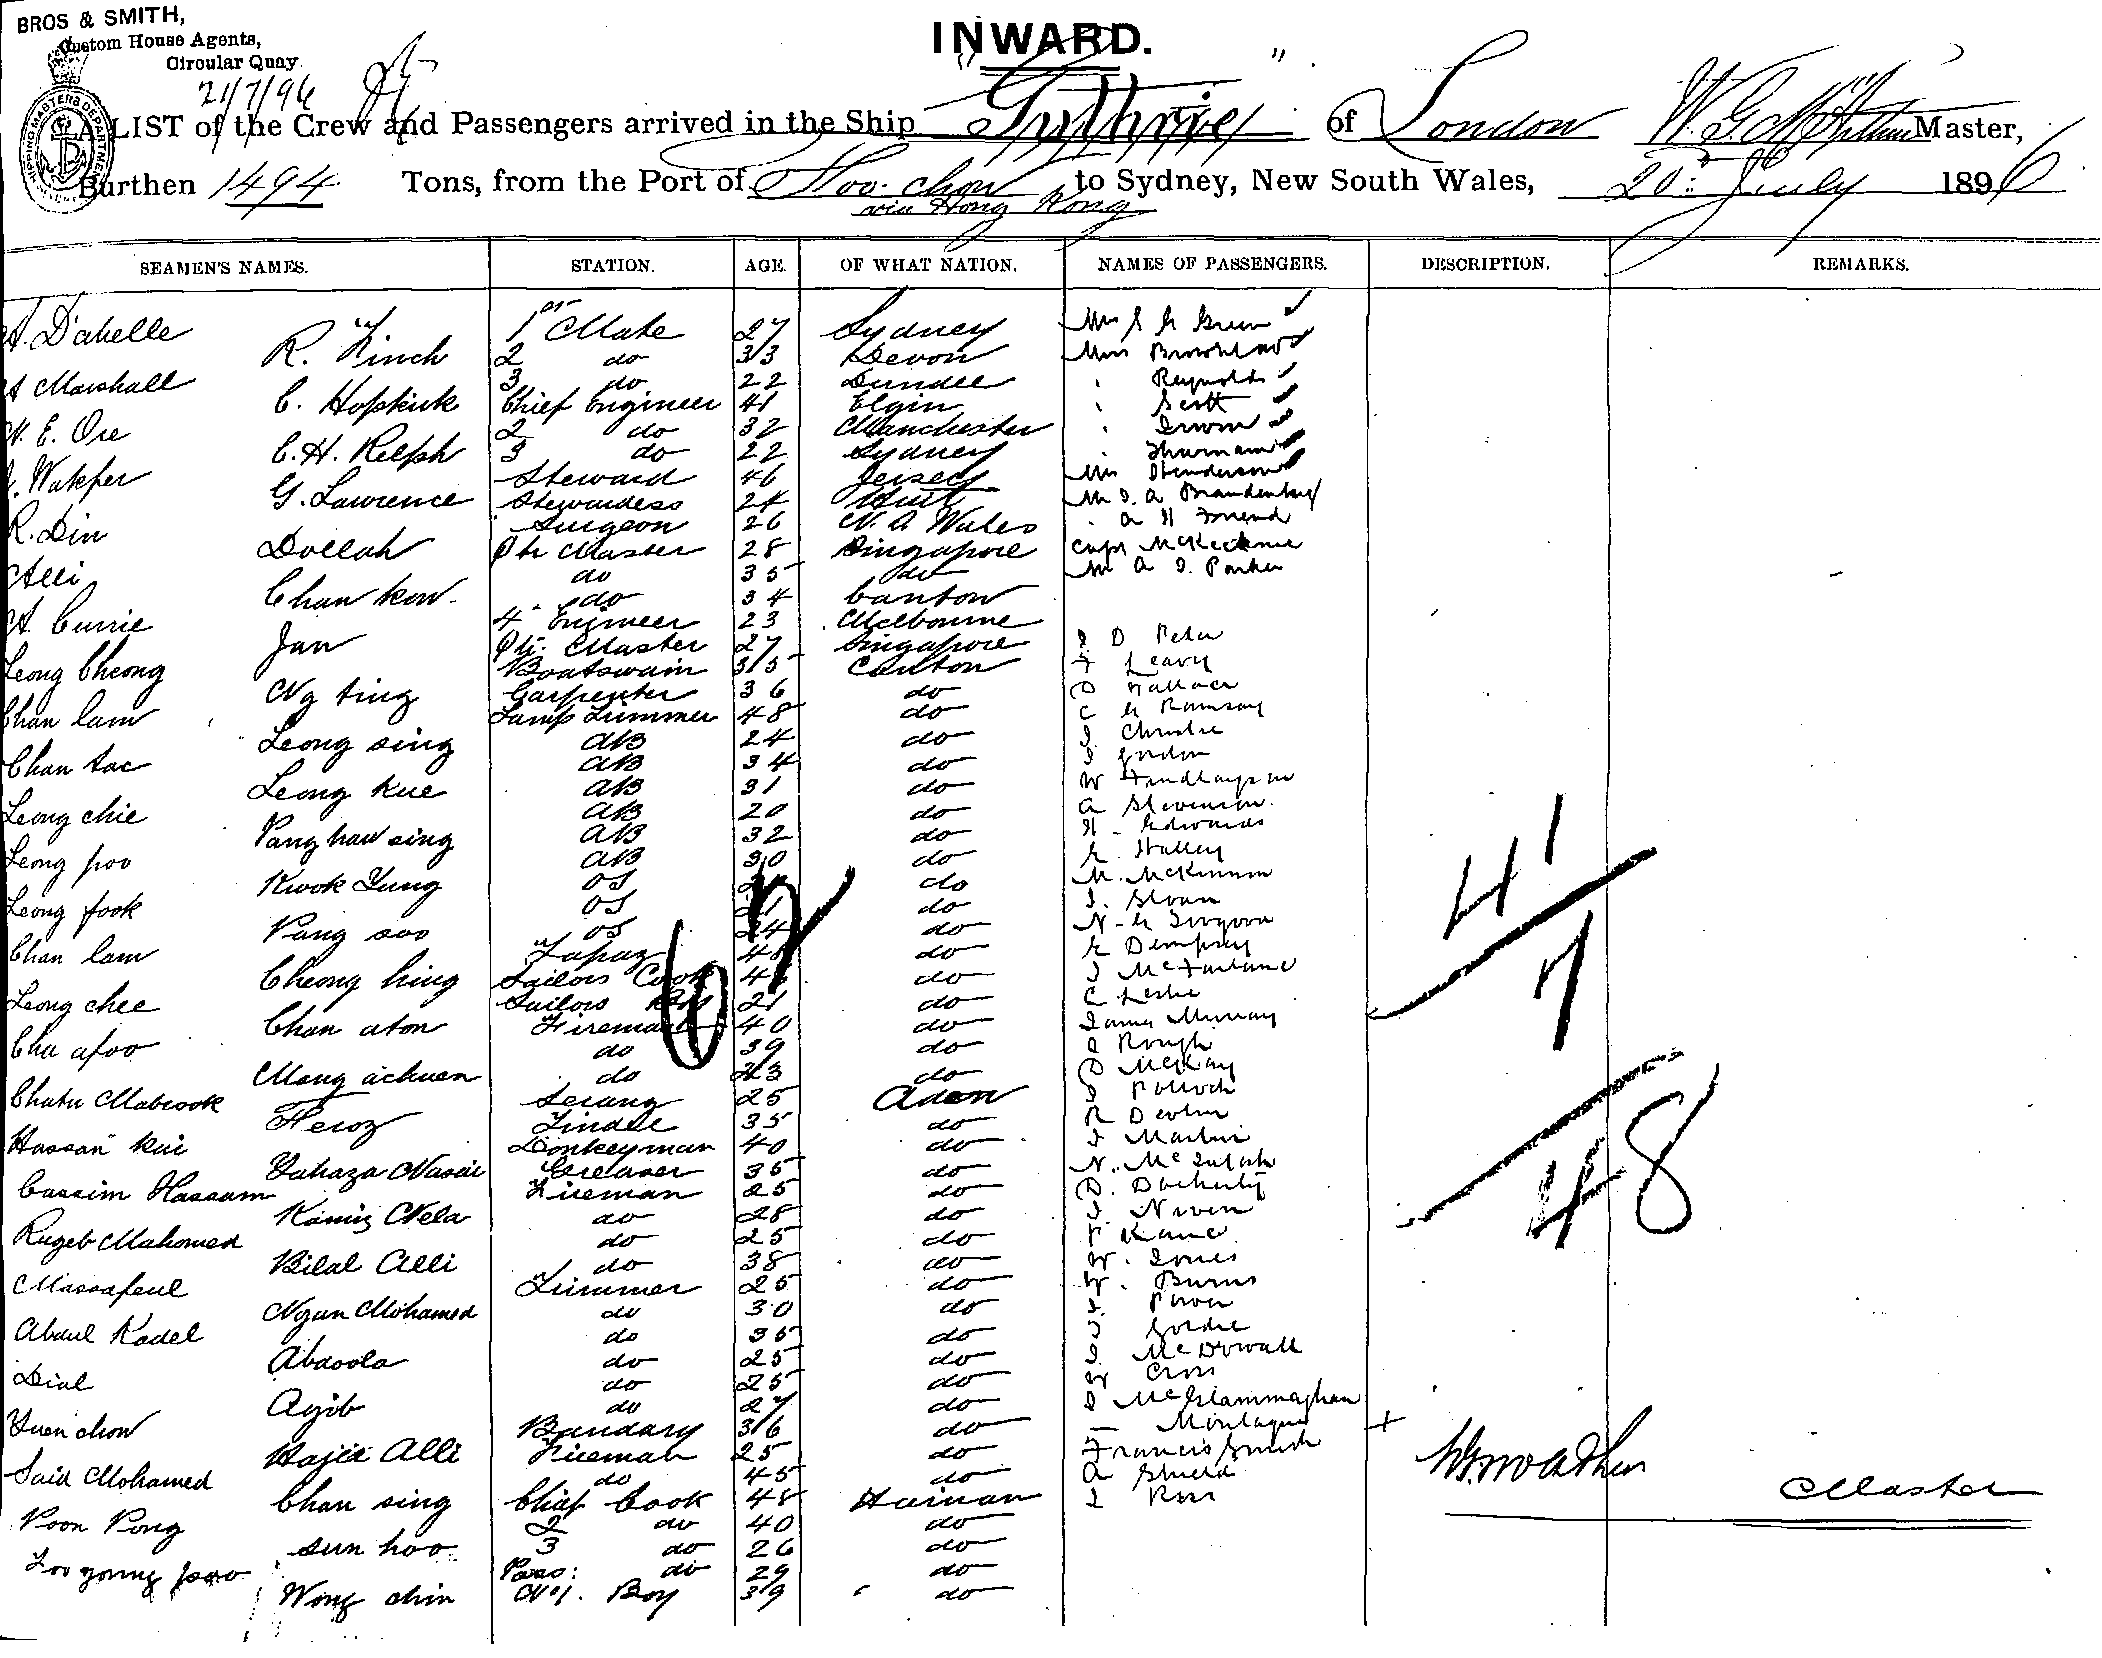 BROS & SMITH,
Custom House Agents,
Circular Quay
21/7/96
INWARD.
A LIST of the Crew and Passengers arrived in the Ship "Guthrie" of London W. G. McArthur Master,
Burthen 1494 Tons, from the Port of Foo-chow to Sydney, New South Wales, 20th July 1896
via Hong Kong
SEAMEN'S NAMES. STATION. AGE. OF WHAT NATION. NAMES OF PASSENGERS. DESCRIPTION. REMARKS.
1st Mate 27 Sydney
R. Finch 2 do 33 Devon
Marshall 3 do 22 Dundee Reynolds
C. Hopkirk Chief Engineer 41 Elgin Scott
2 do 32 Manchester
C. H. Relph 3 do 22 Sydney
Steward 46 Jersey Henderson
G. Lawrence Stewardess 24 Mr J. A. Brandenburg
R. Din Surgeon 26 N. S Wales A H Friend
Dollah Qtr Master 28 Singapore Capt McKechnie
Alli do 35 do Mr A J. Parker
Chan kow do 34 Canton
A. Currie 4 Engineer 23 Melbourne
Jan Qtr. Master 27 Singapore J D Peter
Leong Cheong Boatswain 35 Canton F Leary
Ng ting Carpenter 36 do D Wallace
Chan lam Lamp Trimmer 48 do C G Ramsay
Leong sing AB 24 do J Christie
Chan tac AB 34 do J Gordon
Leong kue AB 31 do W Findlayson
Leong chie AB 20 do A Stevenson
Pang haw sing AB 32 do H Edwards
Leong poo AB 30 do Halley
Kwok Yung OS do M. McKinnon
Leong fook OS 21 do J. Sloan
Pang soo OS 24 do
Chan lam Topaz do Dempsey
Cheong hing Sailors Cook do J McFarlane
Leong chee Sailors Boy 21 do C Leslie
Chan aton Fireman 40 do James Murray
Cha afoo do 39 do Rough
Mong achuen do 23 do D McKay
Chatu Mabrook Serang 25 Aden J Pollock
Feroz Tindle 35 do R Devlin
Hassan Donkeyman 40 do J Martin
Yahaza Nasar Greaser 35 do N. McIntosh
Cassim Hassam Fireman 25 do D. Docherty
Kamis Nela do 28 do J. Niven
Rageb Mahomed do 25 do P Kane
Bilal Alli do 38 do W. Jones
Trimmer 25 do W. Burns
Ngan Mohamed do 30 do
Abdul Kadel do 35 do J Goldie
Abdoola do 25 do J. McDowall
Dial do 25 do W Cross
Ajib do 27 do J McGlammaghan
Yuen chow Bandary 36 do Montague
Hajie Alli Fireman 25 do Francis Smith
Said Mohamed do 45 do A Shield
Chan sing Chief Cook 48 Hainan J Ross
Poon Pong 2 do 40 do
Sun hoo 3 do 26 do
Loo young poo Pass: do 29 do
Wong chin No 1. Boy 39 do
67
41
7
48
W. G. McArthur
Master